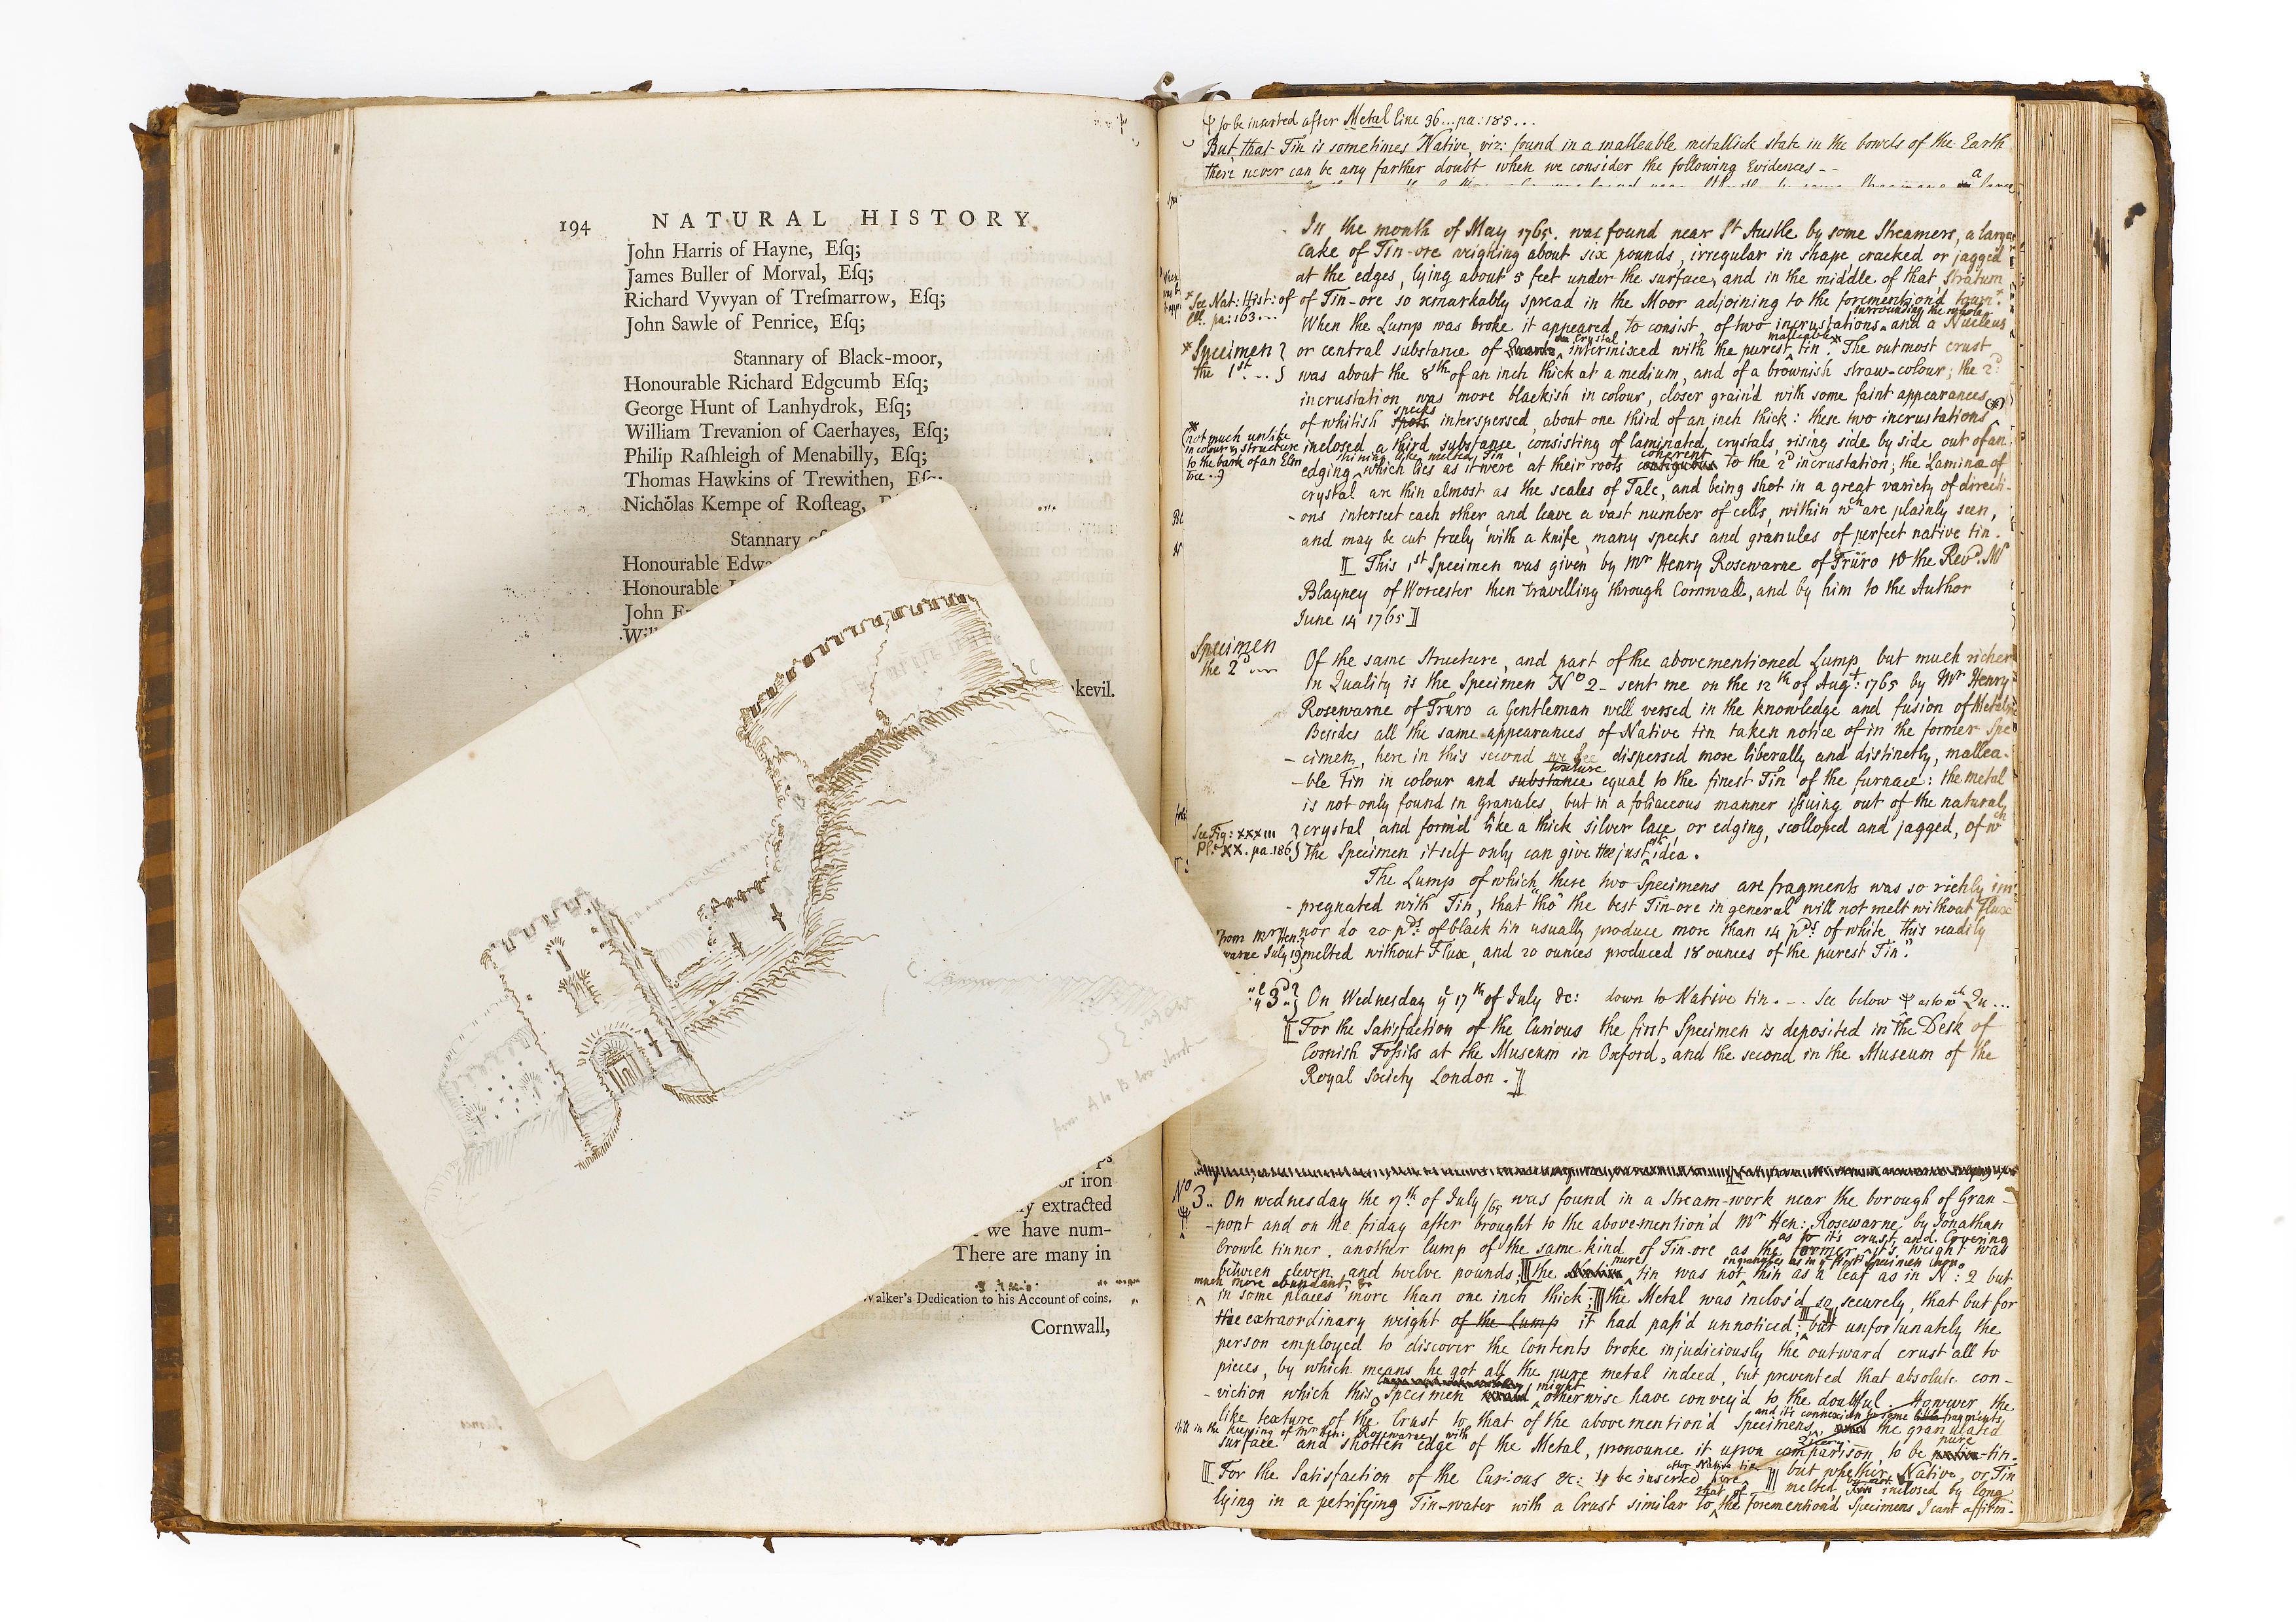 194 NATURAL HISTORY
John Harris of Hayne, Eſq;
James Buller of Morval, Eſq;
Richard Vyvyan of Treſmarrow, Eſq;
John Sawle of Penrice, Eſq;
Stannary of Black-moor,
Honourable Richard Edgcumb Eſq;
George Hunt of Lanhydrok, Eſq;
William Trevanion of Caerhayes, Eſq;
Philip Raſhleigh of Menabilly, Eſq;
Thomas Hawkins of Trewithen, Eſq;
Nicholas Kempe of Roſteag,
Stannary of
Honourable Edwa
Honourable
John
Will
kevil.
or iron
ly extracted
we have num-
There are many in
Walker's Dedication to his Account of coins.
Cornwall,
from A to B
to be inserted after Metal line 36... pa: 185...
But that Tin is sometimes Native, viz: found in a malleable metallick state in the bowels of the Earth
there never can be any farther doubt when we consider the following Evidences --
In the month of May 1765. was found near St Austle by some Streamers, a large
cake of Tin-ore weighing about six pounds, irregular in shape cracked or jagged
at the edges, lying about 5 feet under the surface, and in the middle of that stratum
* See Nat: Hist: of
pa: 163...
of Tin-ore so remarkably spread in the Moor adjoining to the foremention'd town.
surrounding the whole
When the Lump was broke it appeared to consist of two incrustations and a Nucleus
* Specimen
the 1st...
crystal malleable
or central substance of intermixed with the purest tin. The outmost crust
was about the 8th of an inch thick at a medium, and of a brownish straw-colour; the 2d
incrustation was more blackish in colour, closer grain'd with some faint appearances
specks
of whitish spots interspersed, about one third of an inch thick: these two incrustations
* (not much unlike
in colour & structure
to the bark of an Elm
tree..)
inclosed a third substance, consisting of laminated crystals, rising side by side out of an
shining like melted Tin coherent
edging which lies as it were at their roots contiguous to the 2d incrustation; the Laminæ of
crystal are thin almost as the scales of Talc, and being shot in a great variety of directi-
-ons intersect each other and leave a vast number of cells, within wch are plainly seen,
and may be cut freely with a knife, many specks and granules of perfect native tin.
[[ This 1st Specimen was given by Mr Henry Rosewarne of Truro to the Revd. Mr
Blayney of Worcester then travelling through Cornwall, and by him to the Author
June 14 1765 ]]
Specimen
the 2d
Of the same Structure, and part of the abovementioned Lump, but much richer
in Quality is the Specimen No 2 - sent me on the 12th of Augt: 1765 by Mr Henry
Rosewarne of Truro a Gentleman well versed in the knowledge and fusion of Metals
Besides all the same appearances of Native tin taken notice of in the former Spe
-cimen, here in this second we see dispersed more liberally and distinctly, mallea-
texture
-ble Tin in colour and substance equal to the finest Tin of the furnace: the metal
is not only found in Granules, but in a foliaceous manner issuing out of the natural
See Fig: XXXIII
Pl: XX. pa. 186
crystal, and form'd like a thick silver lace, or edging, scolloped and jagged, of wch
The Specimen itself only can give the just idea.
The Lump of which these two Specimens are fragments was so richly im
-pregnated with Tin, that tho' the best Tin-ore in general will not melt without Flux
nor do 20 pds. of black tin usually produce more than 14 pds. of white, this readily
From Mr Hen:
July 19
melted without Flux, and 20 ounces produced 18 ounces of the purest Tin.
3d
On Wednesday ye 17th of July &c: down to Native tin. -- See below
[[ For the Satisfaction of the Curious the first Specimen is deposited in the Desk of
Cornish Fossils at the Museum in Oxford, and the second in the Museum of the
Royal Society London. ]]
No 3.. On wednesday the 17th of July /65 was found in a Stream-work near the borough of Gran-
-pont and on the friday after brought to the above-mention'd Mr Hen: Rosewarne by Jonathan
as for it's crust, and Covering
Crowle tinner, another lump of the same kind of Tin-ore as the former, it's weight was
pure
between eleven and twelve pounds; the tin was not thin as a leaf as in No: 2 but
much more abundant, &
in some places more than one inch thick; the Metal was inclos'd so securely, that but for
the extraordinary weight of the Lump it had pass'd unnoticed; but unfortunately the
person employed to discover the Contents broke injudiciously the outward crust all to
pieces, by which means he got all the pure metal indeed, but prevented that absolute con-
might
-viction which this Specimen otherwise have convey'd to the doubtful. However the
and it's connexion to some little fragments
like texture of the Crust to that of the abovemention'd Specimens, the granulated
still in the keeping of Mr Hen: Rosewarne with
pure
surface and shotten edge of the Metal, pronounce it upon comparison, to be -tin.
after Native tin
[[ For the Satisfaction of the Curious &c: to be inserted here ]] but whether Native, or Tin
that of melted inclosed by long
lying in a petrifying Tin-water with a Crust similar to the foremention'd Specimens I cant affirm.